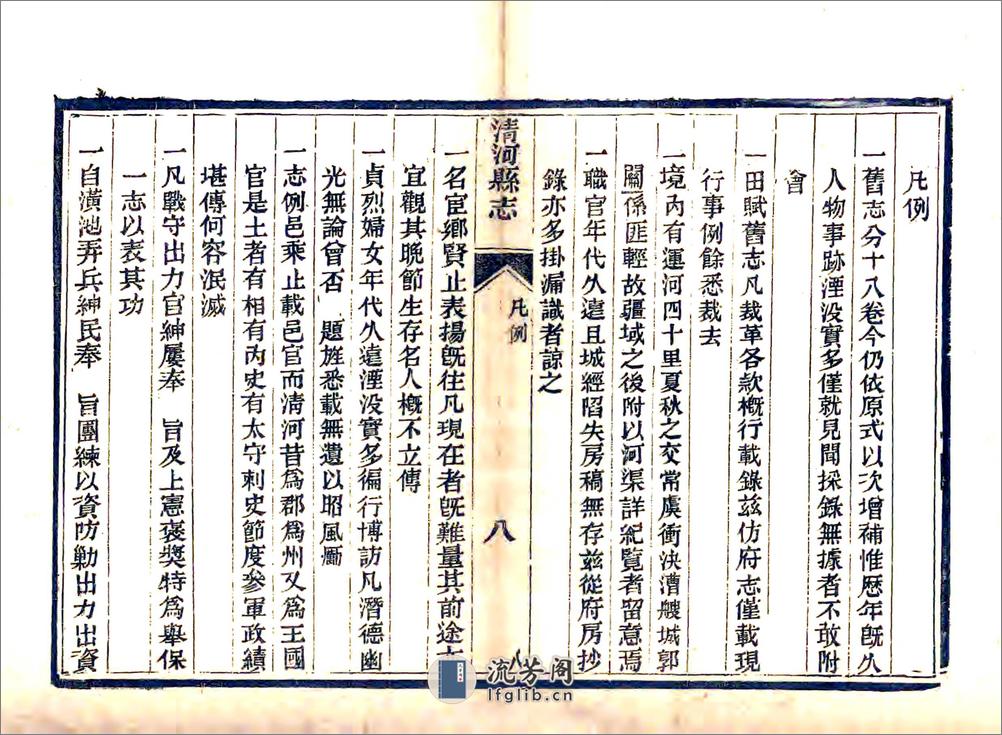 凡例
一舊志分十八卷今仍依原式以次增補惟歷年旣久
人物事跡湮没實多僅就見聞採錄無據者不敢附
會
一田賦舊志凡裁革各款槪行載錄茲仿府志僅載現
行事例餘悉裁去
一境內有運河四十里夏秋之交常虞衝決漕艘城郭
關係匪輕故疆域之後附以河渠詳紀覽者留意焉
一職官年代久遠且城經陷失房稿無存茲從府房抄
錄亦多掛漏識者諒之
清河縣志
凡例
八
八
一名宦鄉賢止表揚旣往凡現在者旣難量其前途
宜觀其晚節生存名人槪不立傳
一貞烈婦女年代久遠湮没實多徧行博訪凡潛德幽
光無論曾否 題旌悉載無遺以昭風厲
一志例邑乘止載邑官而清河昔爲郡爲州又爲王國
官是土者有相有內史有太守刺史節度參軍政績
堪傳何容泯滅
一凡戰守出力官紳屢奉 旨及上憲褒獎特爲舉保
一志以表其功
一自潢池弄兵紳民奉 旨團練以資防勦出力出資
流芳阁
lfglib.cn